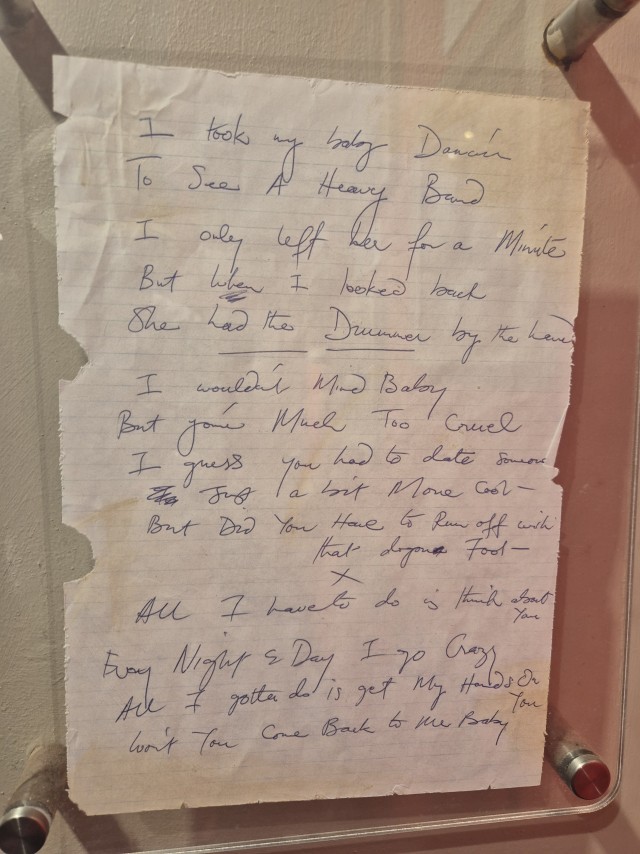 I took my baby Dancin
To See A Heavy Band
I only left her for a Minute
But when I looked back
She had the Drummer by the hand
I wouldn't Mind Baby
But you're Much Too Cruel
I guess you had to date someone
Just a bit More Cool –
But Did You Have to Run off with
that Fool –
X
All I have to do is think about
You
Every Night & Day I go Crazy
All I gotta do is get My Hands On
You
Won't You Come Back to Me Baby